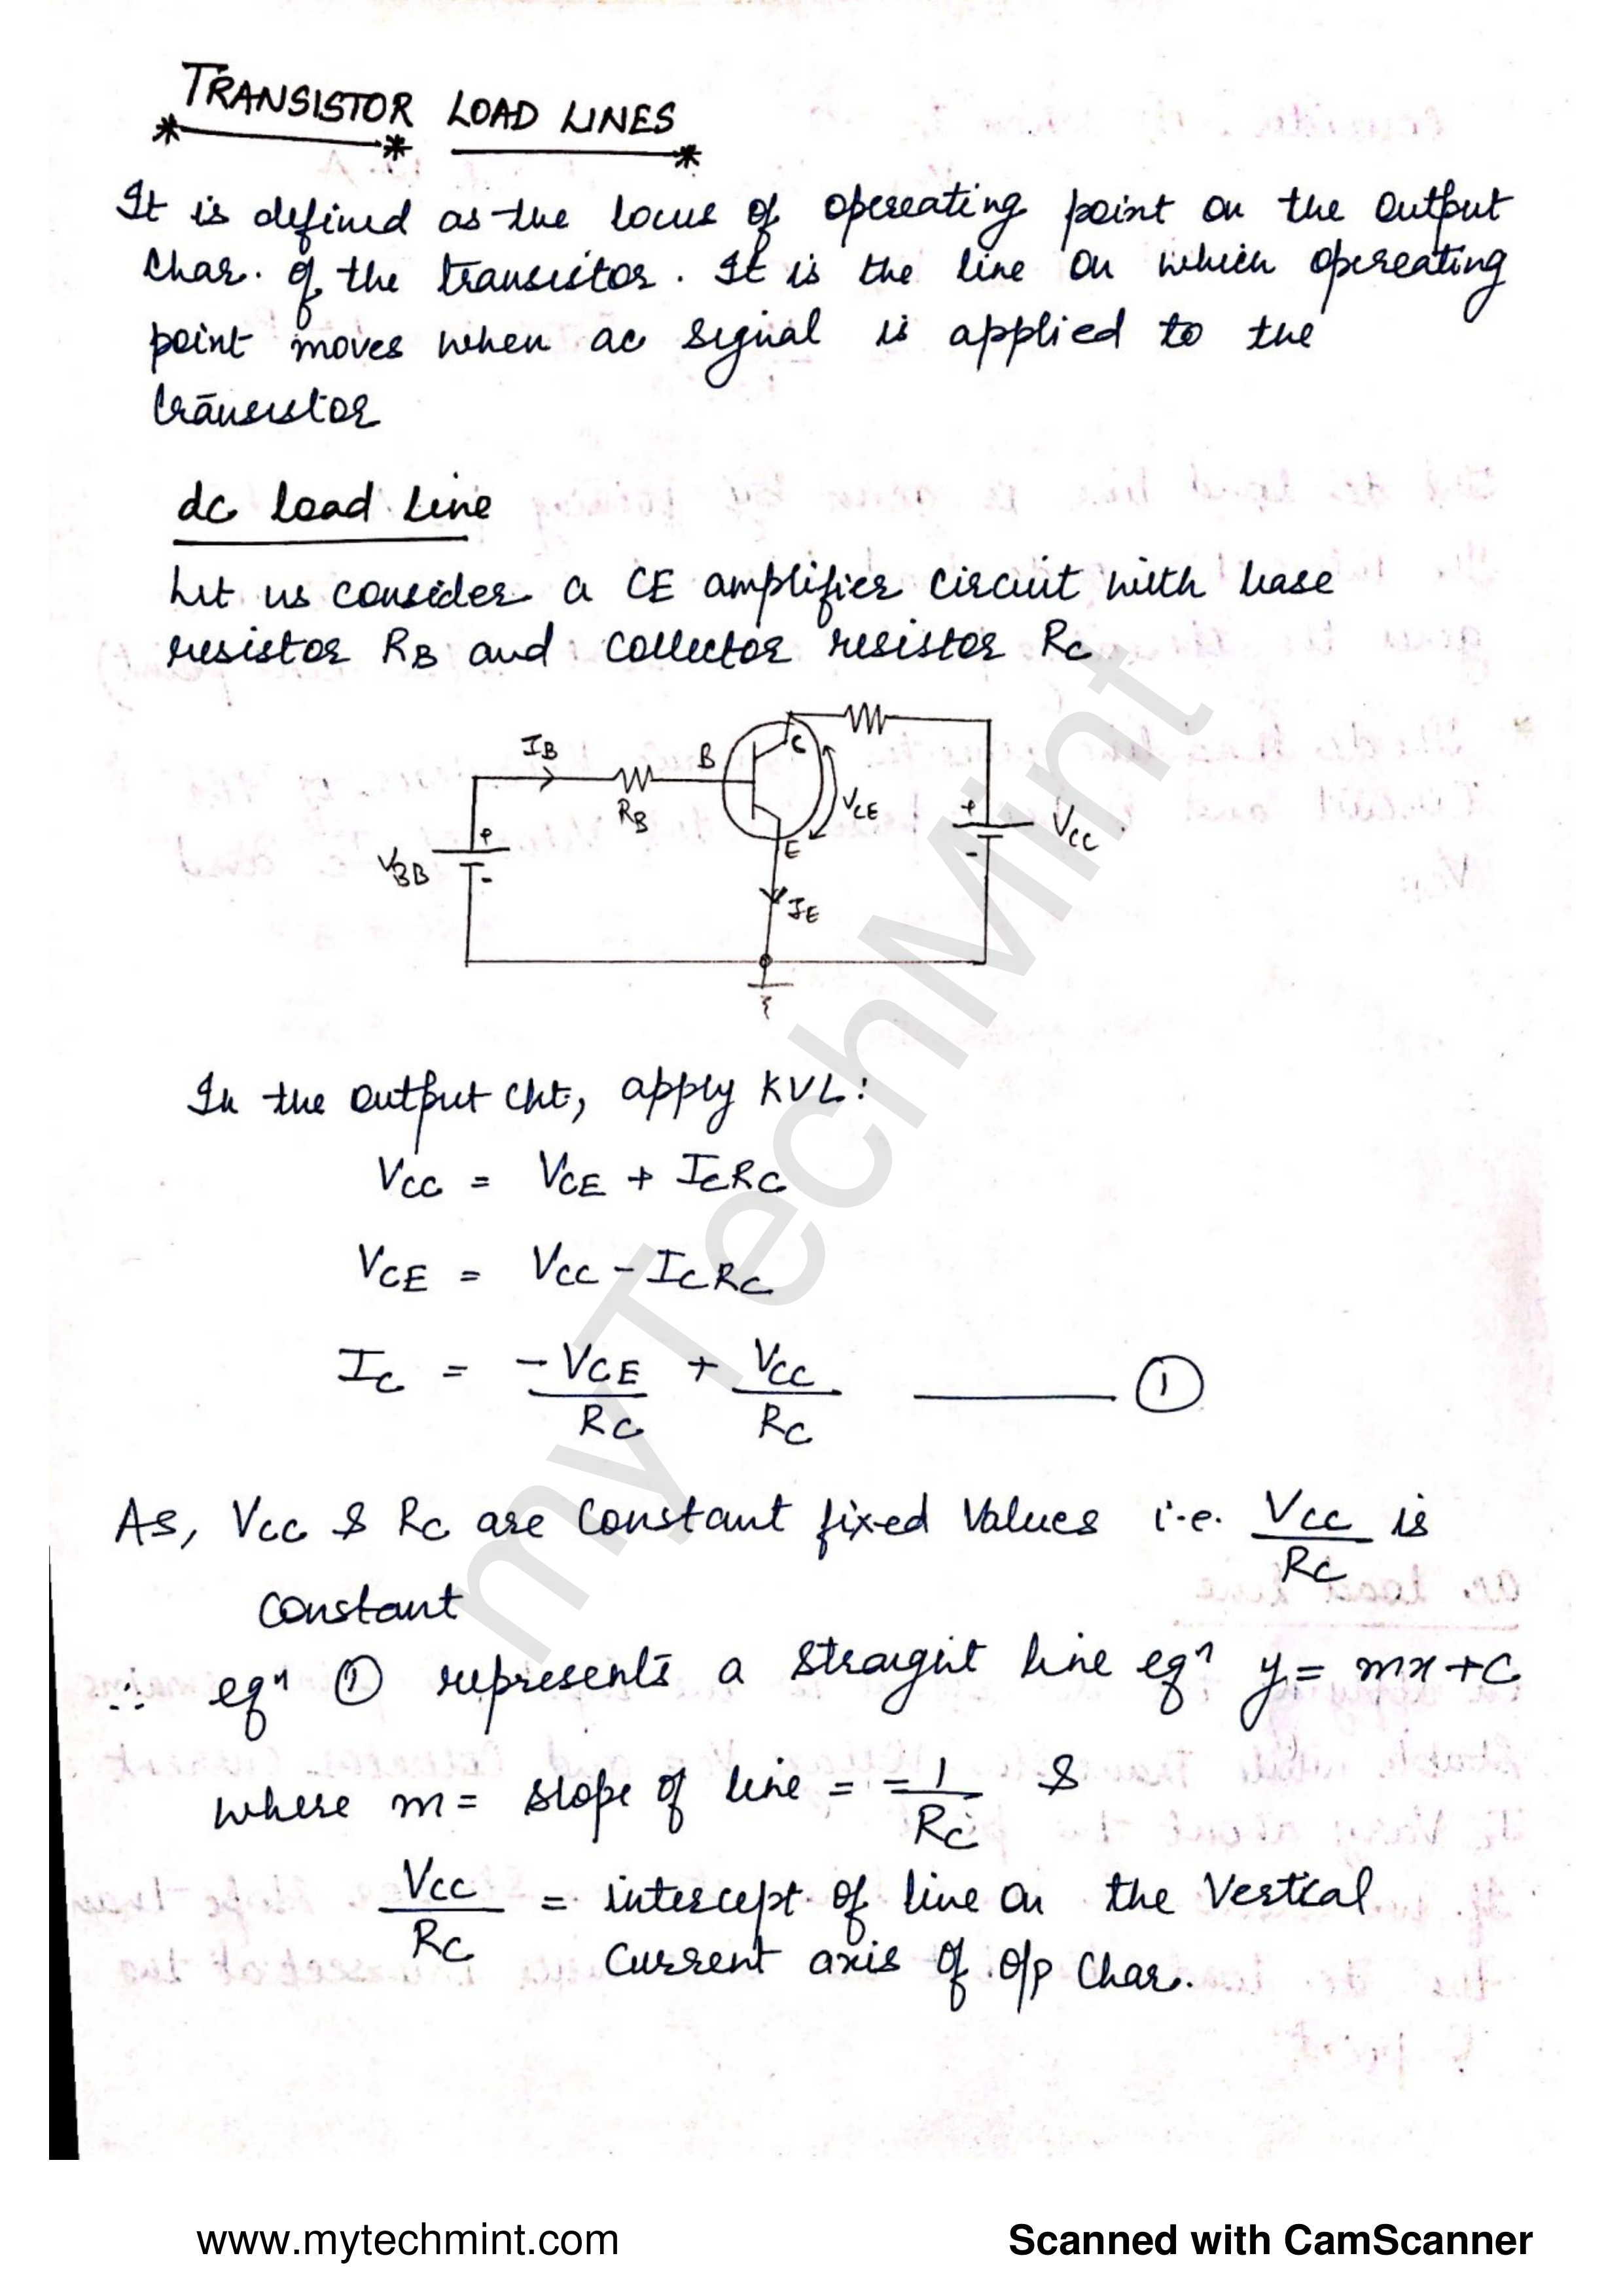 TRANSISTOR LOAD LINES
It is defined as the locus of opereating point on the output
Char. of the transistor. It is the line on which opereating
point moves when ac signal is applied to the
transistor
dc load line
Let us consider a CE amplifier circuit with base
resistor RB and collector resistor RC
IB
B
C
RB
VCE
+
VCC
+
VBB
-
-
E
IE
In the output Ckt, apply KVL:
VCC = VCE + ICRC
VCE = VCC - ICRC
IC = -VCE/RC + VCC/RC ——— ①
As, VCC & RC are Constant fixed Values i.e. VCC/RC is
Constant
∴ eqn ① represents a Straight line eqn y = mx + C
where m = slope of line = -1/RC &
VCC/RC = intercept of line on the Vertical
Current axis of o/p Char.
myTechMint
www.mytechmint.com
Scanned with CamScanner